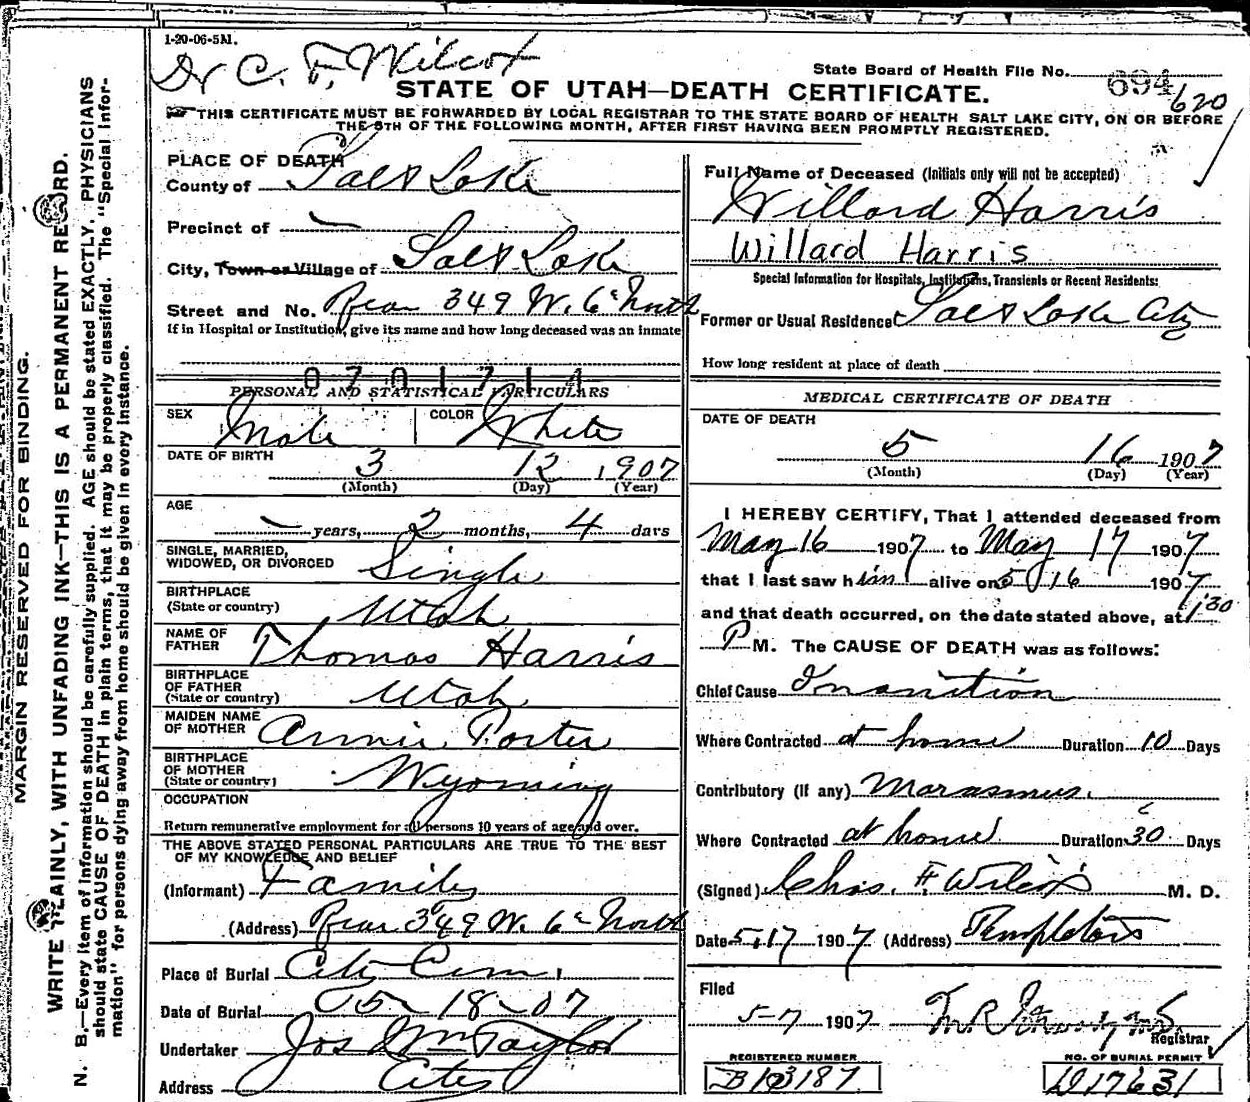 1-20-06-5M.
Dr C. F. Wilcox
State Board of Health File No. 694
620
STATE OF UTAH—DEATH CERTIFICATE.
THIS CERTIFICATE MUST BE FORWARDED BY LOCAL REGISTRAR TO THE STATE BOARD OF HEALTH SALT LAKE CITY, ON OR BEFORE
THE 5TH OF THE FOLLOWING MONTH, AFTER FIRST HAVING BEEN PROMPTLY REGISTERED.
MARGIN RESERVED FOR BINDING.
WRITE PLAINLY, WITH UNFADING INK—THIS IS A PERMANENT RECORD.
N. B.—Every item of information should be carefully supplied. AGE should be stated EXACTLY. PHYSICIANS
should state CAUSE OF DEATH in plain terms, that it may be properly classified. The "Special Infor-
mation" for persons dying away from home should be given in every instance.
PLACE OF DEATH
County of Salt Lake
Precinct of —
City, Town or Village of Salt Lake
Street and No. Rear 349 W. 6th North
If in Hospital or Institution, give its name and how long deceased was an inmate
0701714
PERSONAL AND STATISTICAL PARTICULARS
SEX Male COLOR White
DATE OF BIRTH 3 12 1907
(Month) (Day) (Year)
AGE
— years, 2 months, 4 days
SINGLE, MARRIED,
WIDOWED, OR DIVORCED Single
BIRTHPLACE
(State or country) Utah
NAME OF
FATHER Thomas Harris
BIRTHPLACE
OF FATHER
(State or country) Utah
MAIDEN NAME
OF MOTHER Annie Porter
BIRTHPLACE
OF MOTHER
(State or country) Wyoming
OCCUPATION
Return remunerative employment for all persons 10 years of age and over.
THE ABOVE STATED PERSONAL PARTICULARS ARE TRUE TO THE BEST
OF MY KNOWLEDGE AND BELIEF
(Informant) Family
(Address) Rear 349 W. 6th North
Place of Burial City Cem.
Date of Burial 5-18-07
Undertaker Jos Wm Taylor
Address City
Full Name of Deceased (Initials only will not be accepted)
Willard Harris
Willard Harris
Special Information for Hospitals, Institutions, Transients or Recent Residents:
Former or Usual Residence Salt Lake City
How long resident at place of death
MEDICAL CERTIFICATE OF DEATH
DATE OF DEATH
5 16 1907
(Month) (Day) (Year)
I HEREBY CERTIFY, That I attended deceased from
May 16 1907 to May 17 1907
that I last saw him alive on 5 16 1907
and that death occurred, on the date stated above, at 1:30
P M. The CAUSE OF DEATH was as follows:
Chief Cause Inanition
Where Contracted at home Duration 10 Days
Contributory (if any) Marasmus.
Where Contracted at home Duration 30 Days
(Signed) Chas. F. Wilcox M. D.
Date 5.17 1907 (Address) Templeton
Filed
5-7 1907
Registrar
REGISTERED NUMBER
NO. OF BURIAL PERMIT
D17631